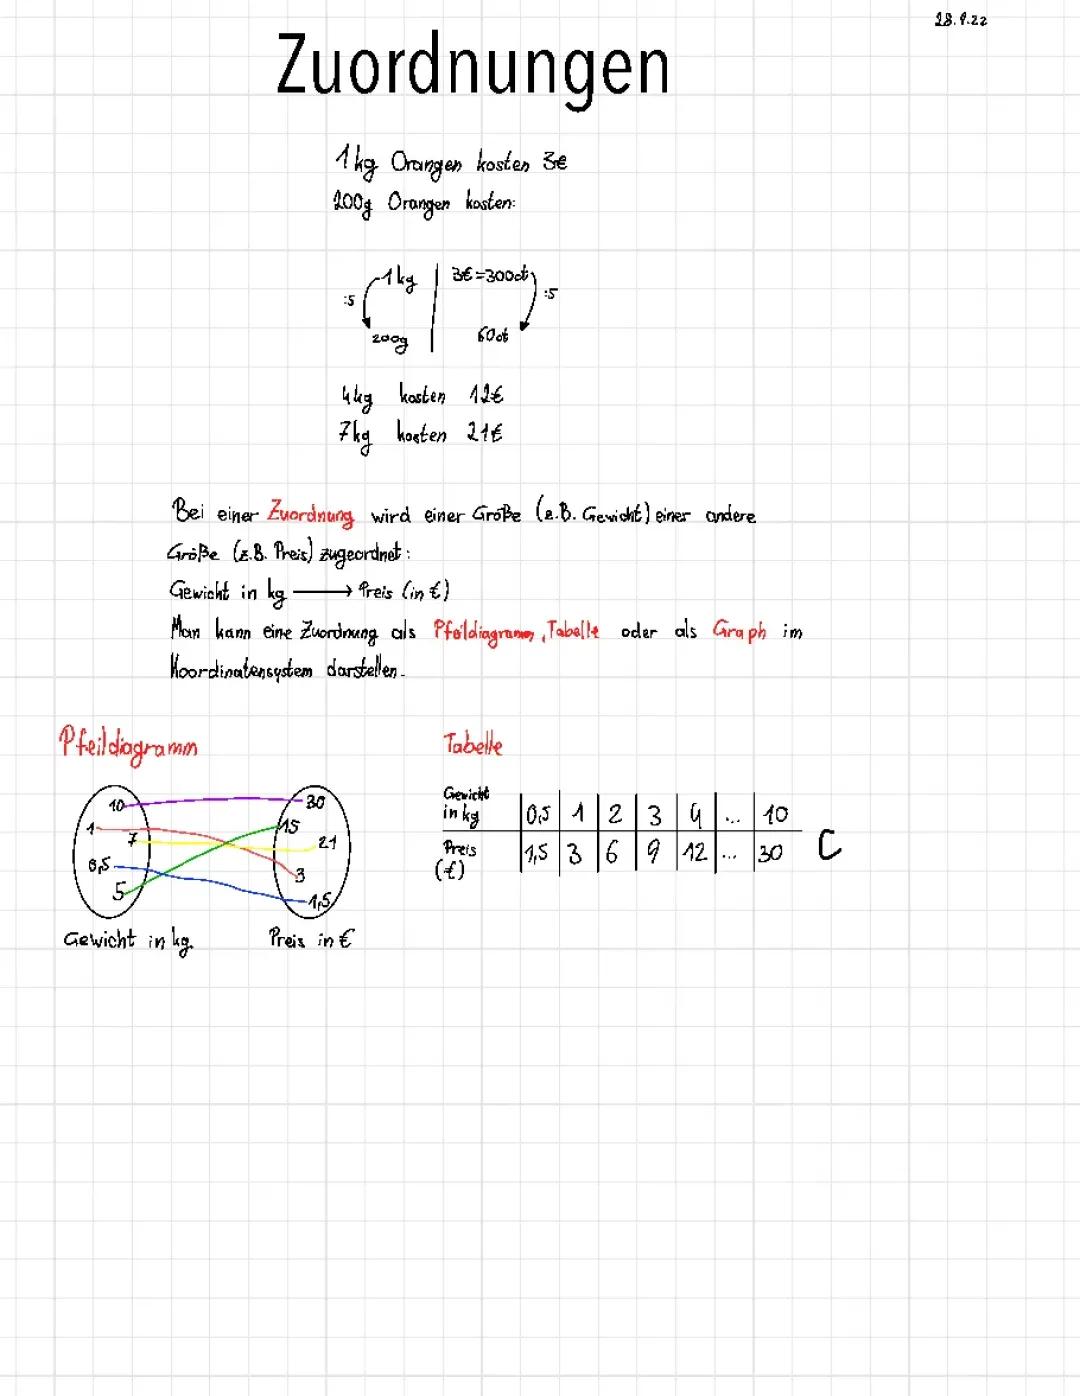 28.9.22
Zuordnungen
1kg Orangen kosten 3€
200g Orangen kosten:
1kg | 3€=300ct
:5 :5
200g | 60ct
4kg kosten 12€
7kg kosten 21€
Bei einer Zuordnung wird einer Größe (z.B. Gewicht) einer andere
Größe (z.B. Preis) zugeordnet:
Gewicht in kg → Preis (in €)
Man kann eine Zuordnung als Pfeildiagramm, Tabelle oder als Graph im
Koordinatensystem darstellen.
Pfeildiagramm
10 30
1 15
7 21
0,5 3
5 1,5
Gewicht in kg Preis in €
Tabelle
Gewicht
in kg | 0,5 | 1 | 2 | 3 | 4 | ... | 10
Preis
(€) | 1,5 | 3 | 6 | 9 | 12 | ... | 30
C